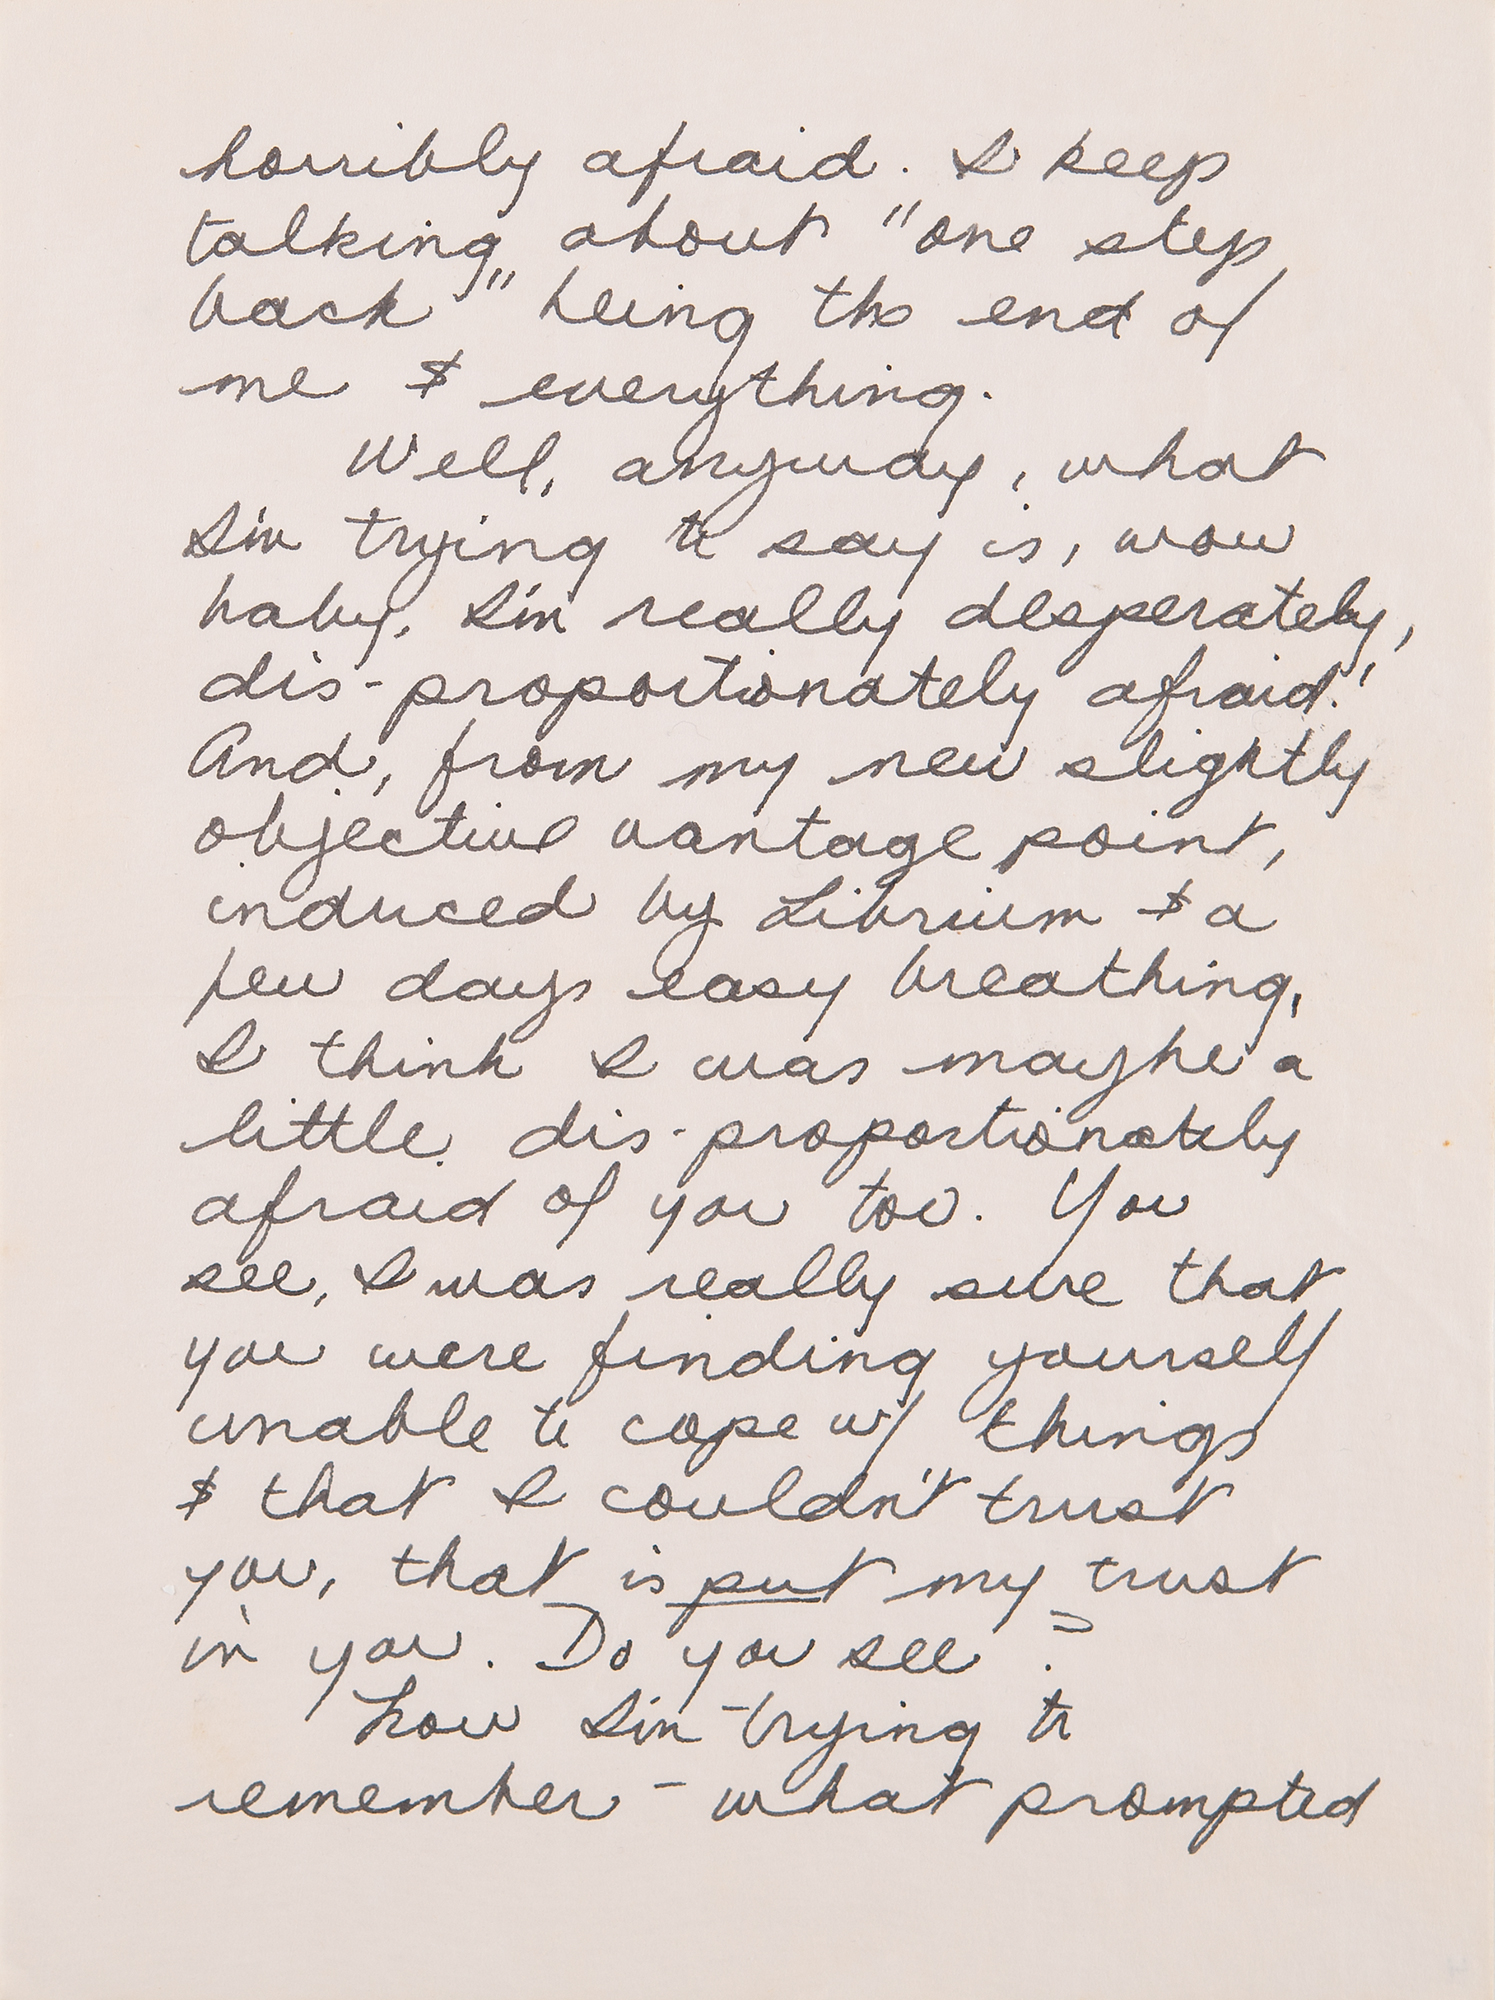 horribly afraid. I keep
talking about "one step
back" being the end of
me & everything.
Well, anyway, what
I'm trying to say is, wow
baby, I'm really desperately,
dis-proportionately afraid!
And, from my new slightly
objective vantage point,
induced by Librium & a
few days easy breathing,
I think I was maybe a
little dis-proportionately
afraid of you too. You
see, I was really sure that
you were finding yourself
unable to cope w/ things
& that I couldn't trust
you, that is put my trust
in you. Do you see?
how I'm trying to
remember – what prompted